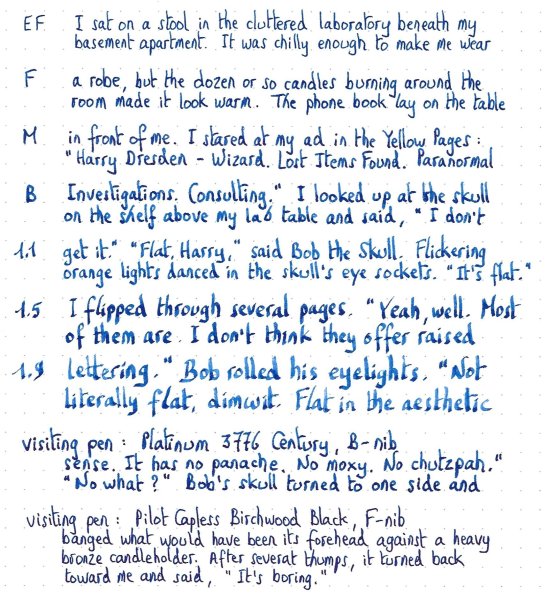 EF I sat on a stool in the cluttered laboratory beneath my
basement apartment. It was chilly enough to make me wear
F a robe, but the dozen or so candles burning around the
room made it look warm. The phone book lay on the table
M in front of me. I stared at my ad in the Yellow Pages:
"Harry Dresden - Wizard. Lost Items Found. Paranormal
B Investigations. Consulting." I looked up at the skull
on the shelf above my lab table and said, "I don't
1.1 get it." "Flat, Harry," said Bob the Skull. Flickering
orange lights danced in the skull's eye sockets. "It's flat."
1.5 I flipped through several pages. "Yeah, well. Most
of them are. I don't think they offer raised
1.9 lettering." Bob rolled his eyelights. "Not
literally flat, dimwit. Flat in the aesthetic
visiting pen: Platinum 3776 Century, B-nib
sense. It has no panache. No moxy. No chutzpah."
"No what?" Bob's skull turned to one side and
visiting pen: Pilot Capless Birchwood Black, F-nib
banged what would have been its forehead against a heavy
bronze candleholder. After several thumps, it turned back
toward me and said, "It's boring."